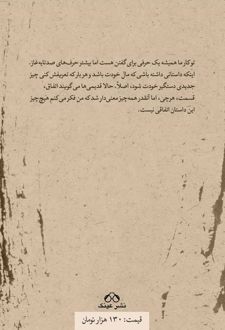 تو کار ما همیشه یک حرفی برای گفتن هست اما بیشتر حرف‌های صدتا یه غاز.
اینکه داستانی داشته باشی که مال خودت باشد و هر بار که تعریفش کنی چیز
جدیدی دستگیر خودت شود، اصلاً. حالا قدیمی‌ها می‌گویند اتفاق،
قسمت، هرچی، اما آنقدر همه‌چیز معنی‌دار شد که من فکر می‌کنم هیچ‌چیز
این داستان اتفاقی نیست.
نشر عینک
قیمت: ۱۳۰ هزار تومان